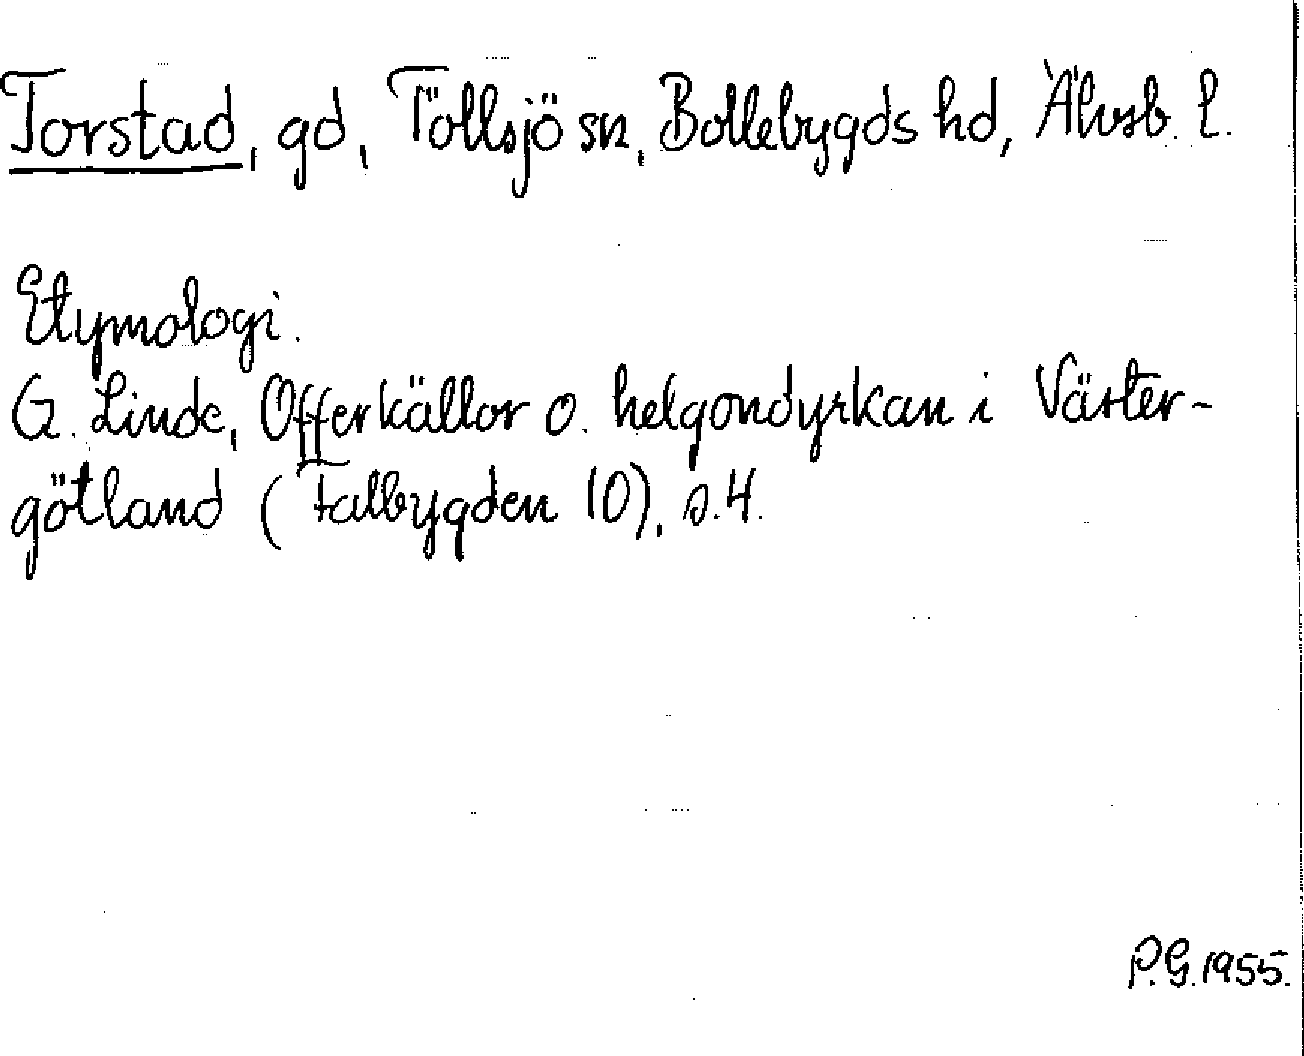 Torstad, gd, Töllsjö sn, Bollebygds hd, Älvsb. l.
Etymologi.
G. Linde, Offerkällor o. helgondyrkan i Väster-
götland (Falbygden 10), s. 4.
P.G. 1955.